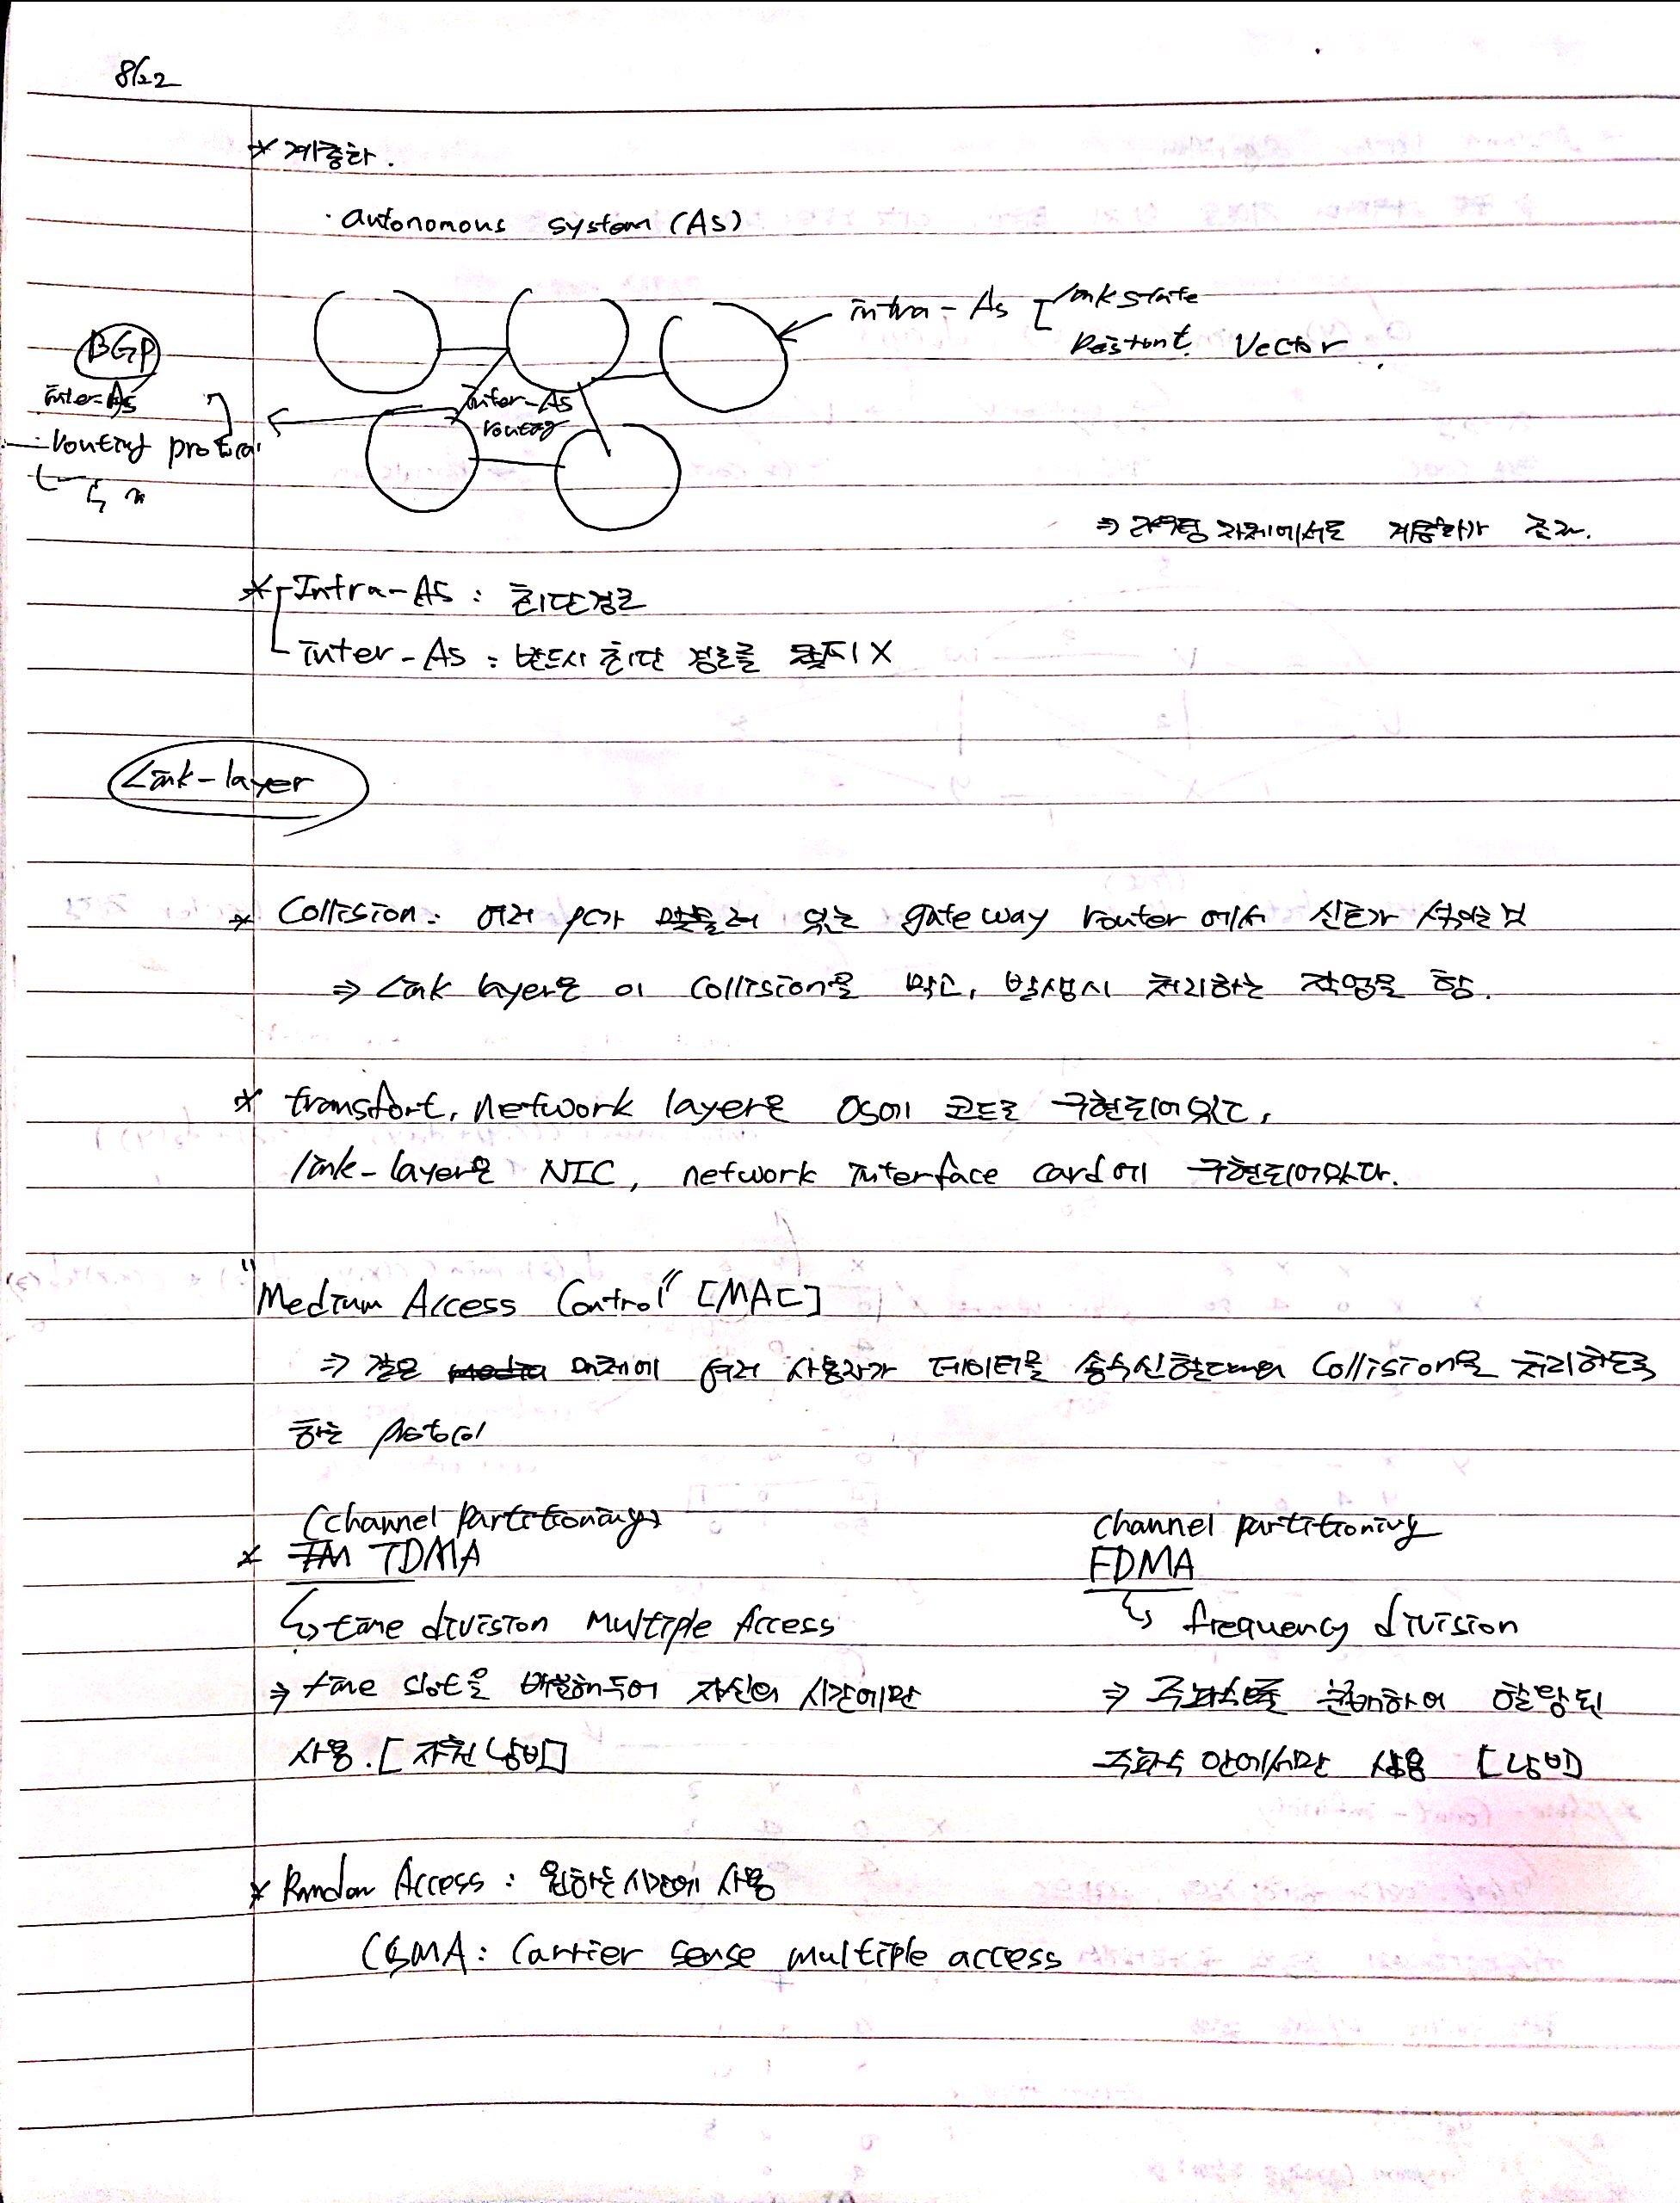 8/22
* 계층화.
· autonomous system (AS)
intra-As
link state
Distant. Vector
BGP
inter-As
routing protocol
inter-As
routing
⇒ 라우팅 자체에서도 계층화가 존재.
* Intra-AS : 최단경로
inter-As : 반드시 최단 경로를 X
Link-layer
* Collision. 여러 pc가 맞물려 있는 gate way router에서 신호가 섞이는 것
⇒ Link layer은 이 Collision을 막고, 발생시 처리하는 작업을 함.
* transport, network layer은 OS에 코드로 구현되어있고,
link-layer은 NIC, network interface card에 구현되어있다.
"Medium Access Control" [MAC]
⇒ 같은 media 매체에 여러 사용자가 데이터를 송수신할때의 Collision을 처리하도록
하는 protocol
(channel partitioning)
* TM TDMA
↳ time division Multiple Access
⇒ time slot을 배분해두어 자신의 시간에만
사용. [자원 낭비]
channel partitioning
FDMA
↳ frequency division
⇒ 주파수를 분배하여 할당된
주파수 안에서만 사용 [낭비]
* Random Access : 원하는 시간에 사용
CSMA : Carrier sense multiple access